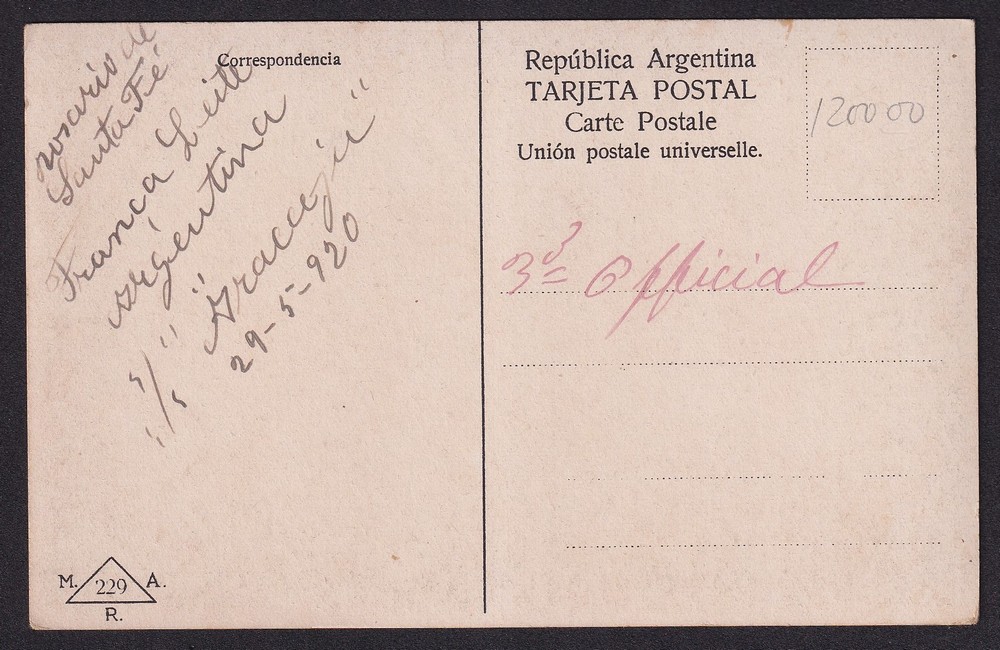 Correspondencia
rosario de
Santa Fé
Franca Leite
Argentina
"Aracajú"
29-5-920
M. 229 A.
R.
República Argentina
TARJETA POSTAL
Carte Postale
Unión postale universelle.
120000
3º Official